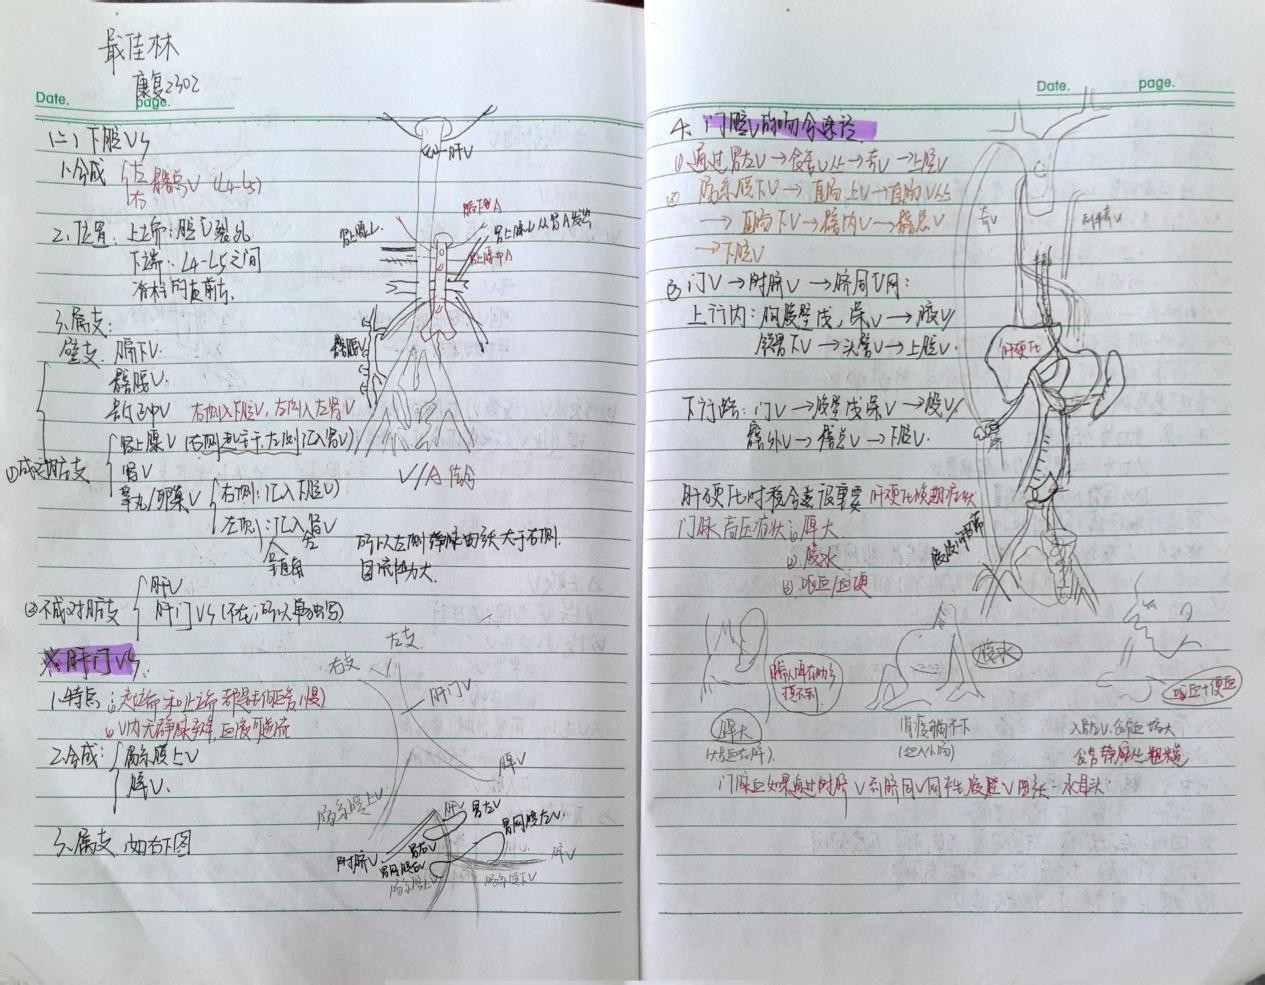 最佳林
康复2302
Date. page.
(二)下腔V系
1.合成 左 右 髂总V (L4-L5)
2.位置:上端:腔V裂孔
下端:L4-L5之间
脊柱的右前方.
3.属支:
壁支 膈下V.
髂腰V.
右侧入下腔V,左侧入左肾V
①成对脏支
肾上腺V(右侧 左侧汇入肾V)
肾V
睾丸/卵巢V
右侧:汇入下腔V)
左侧:汇入肾V
呈直角
所以左侧静脉曲张大于右侧.
因流阻力大.
②不成对脏支
肝V
肝门V系(不在 所以单独写)
※肝门V系.
1.特点 ①起始端和止端都是毛细血管(慢)
②V内无静脉瓣,血液可逆流
2.合成:
肠系膜上V
脾V.
3.属支 如右下图
肝V
膈下A
肾上腺V
肾上腺中A
髂腰V
V//A 伴行
左支
右支
肝门V
脾V
肠系膜上V
附脐V
肝V
胃左V
胃右V
胃网膜左V.
胃网膜右V
肠系膜上V
肠系膜下V
脾V
Date. page.
4. 门腔V的吻合途径
① 通过胃左V→食管V丛→奇V→上腔V
② 肠系膜下V→直肠上V→直肠V丛
→直肠下V→髂内V→髂总V
→下腔V
③ 门V→附脐V→脐周V网:
上行内:胸腹壁浅,深V→腋V/
锁骨下V→头臂V→上腔V.
下行路:门V→腹壁浅深V→股V/
髂外V→髂总V→下腔V.
肝硬化时 吻合 很重要 肝硬化晚期症状
门脉高压症状:①脾大
②腹水
③呕血/血便
奇V
副半奇V
肝硬化
脐
脾大
腹水
呕血+便血
门脉血如果通过附脐V到脐周V网产生腹壁V曲张-水母头: